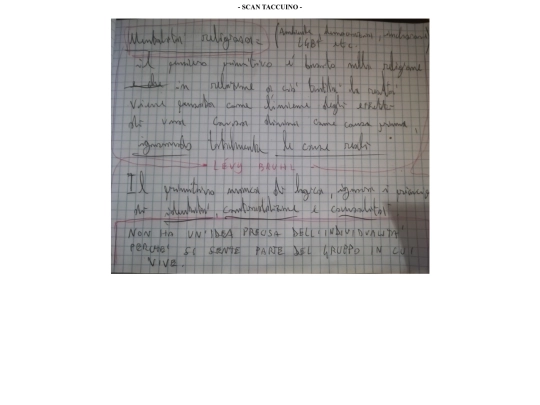 - SCAN TACCUINO -
Mentalità religiosa:
il pensiero primitivo è basato sulla religione
in relazione a ciò tutta la realtà
viene pensata come l'insieme degli effetti
di una causa divina come causa prima,
ignorando totalmente le cause reali
LÉVY BRUHL
Il primitivo manca di logica, ignora i principi
di identità, contraddizione e causalità
NON HA UN'IDEA PRECISA DELL'INDIVIDUALITÀ
PERCHÉ SI SENTE PARTE DEL GRUPPO IN CUI
VIVE.